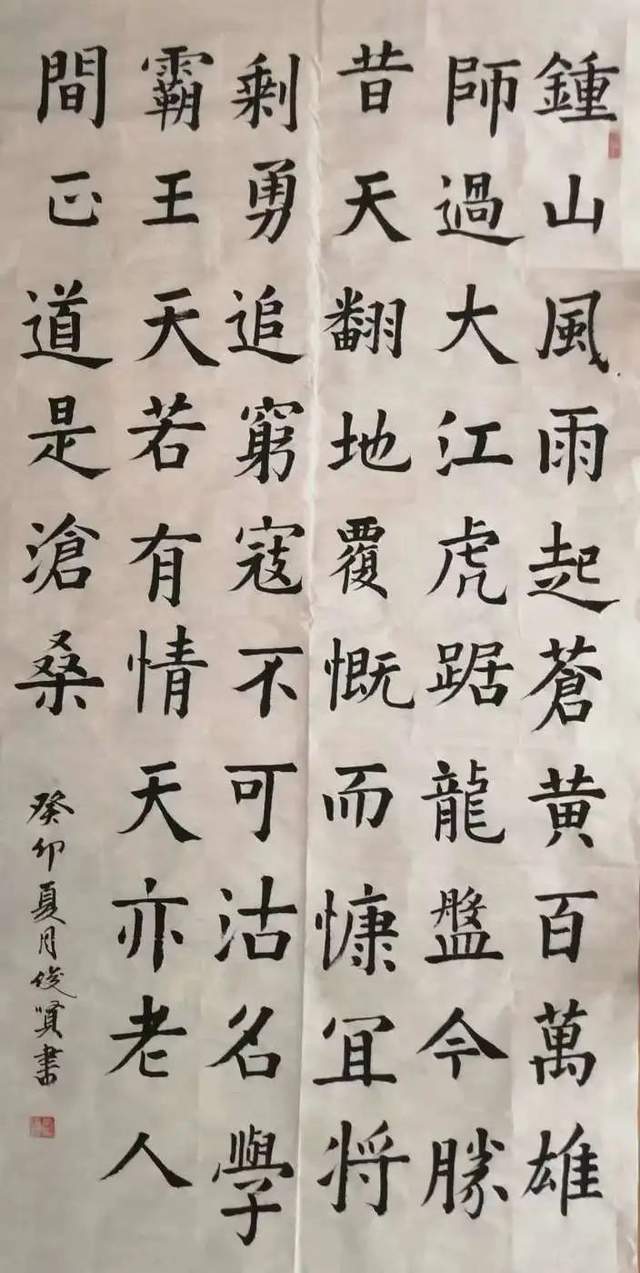 鍾山風雨起蒼黃百萬雄
師過大江虎踞龍盤今勝
昔天翻地覆慨而慷宜將
剩勇追窮寇不可沽名學
霸王天若有情天亦老人
間正道是滄桑
癸卯夏月俊賢書